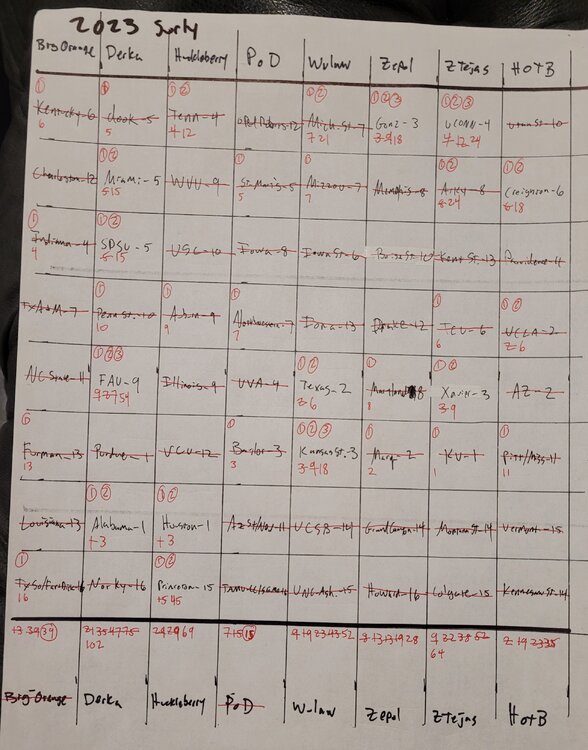 2023 Surly
Big Orange Derka Huckleberry PoD Wulaw Zepol ZTejas HOTB
① ① ①② ①② ①②③ ①②③
Kentucky-6 Tenn-4 Mich.St-7 Gonz-3 UCONN-4 Utah St-10
6 5 4 12 7 21 3 9 18 4 12 24
①② ① ① ①② ①②
Charleston-12 Miami-5 WVU-9 St.Maris-5 Mizzou-7 Memphis-8 Arky-8 Creighton-6
5 15 5 7 8 24 6 18
① ①②
Indiana-4 SDSU-5 USC-10 Iowa-8 Iowa St-6 Boise St-10 Kent St.-13 Providence-11
4 5 15
① ① ① ① ①②
TxA+M-7 Penn St.-10 Auburn-9 Northwestern-7 Iona-13 Drake-12 TCU-6 UCLA-2
10 9 7 6 2 6
①②③ ①② ① ①②
NC State-11 FAU-9 Illinois-9 UVA-4 Texas-2 Maryland-8 Xavier-3 AZ-2
9 27 54 2 6 8 3 9
① ① ①②③ ① ① ①
Furman-13 Purdue-1 VCU-12 Baylor-3 Kansas St.-3 Marq-2 KU-1 Pitt/Miss-11
13 3 3 9 18 2 1 11
①② ①②
Louisiana-13 Alabama-1 Houston-1 AzSt/Nev-11 UCSB-14 Grand Canyon-14 Montana St-14 Vermont-15
1 3 1 3
① ①②
TxSo/FarDick-16 Nor Ky-16 Princeton-15 UNC Ash-15 Howard-16 Colgate-15 Kennesaw St-14
16 15 45
13 39 39 7 15 15
102 64
Big Orange Derka Huckleberry PoD Wulaw Zepol ZTejas HOTB